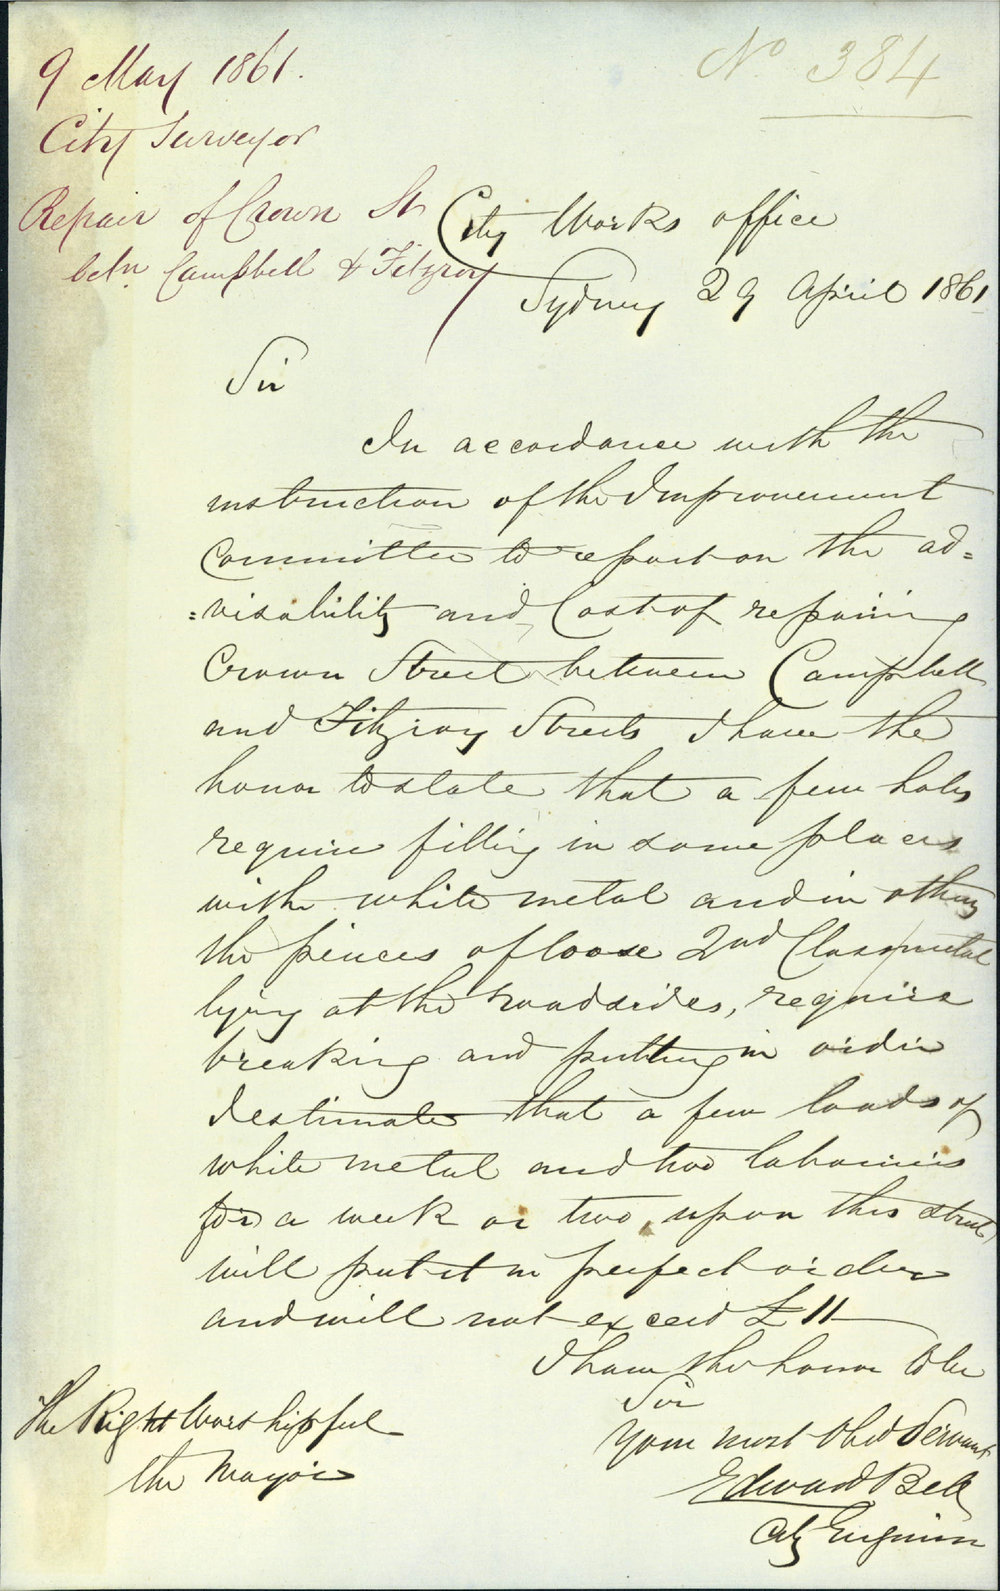 9 May 1861.
No 384
City Surveyor
Repair of Crown St
betn. Campbell & Fitzroy
City Works office
Sydney 29 April 1861
Sir
In accordance with the
instruction of the Improvement
Committee to report on the ad=
=visability and Cost of repairing
Crown Street between Campbell
and Fitzroy Streets I have the
honor to state that a few holes
require filling in some places
with white metal and in others
the pieces of loose 2nd Class metal
lying at the roadsides, require
breaking and putting in order
I estimate that a few loads of
white metal and two labourers
for a week or two, upon this street
will put it in perfect order
and will not exceed £11
I have the honor to be
Sir
Your most Obed Servant
Edward Bell
City Engineer
The Right Worshipful
the Mayor